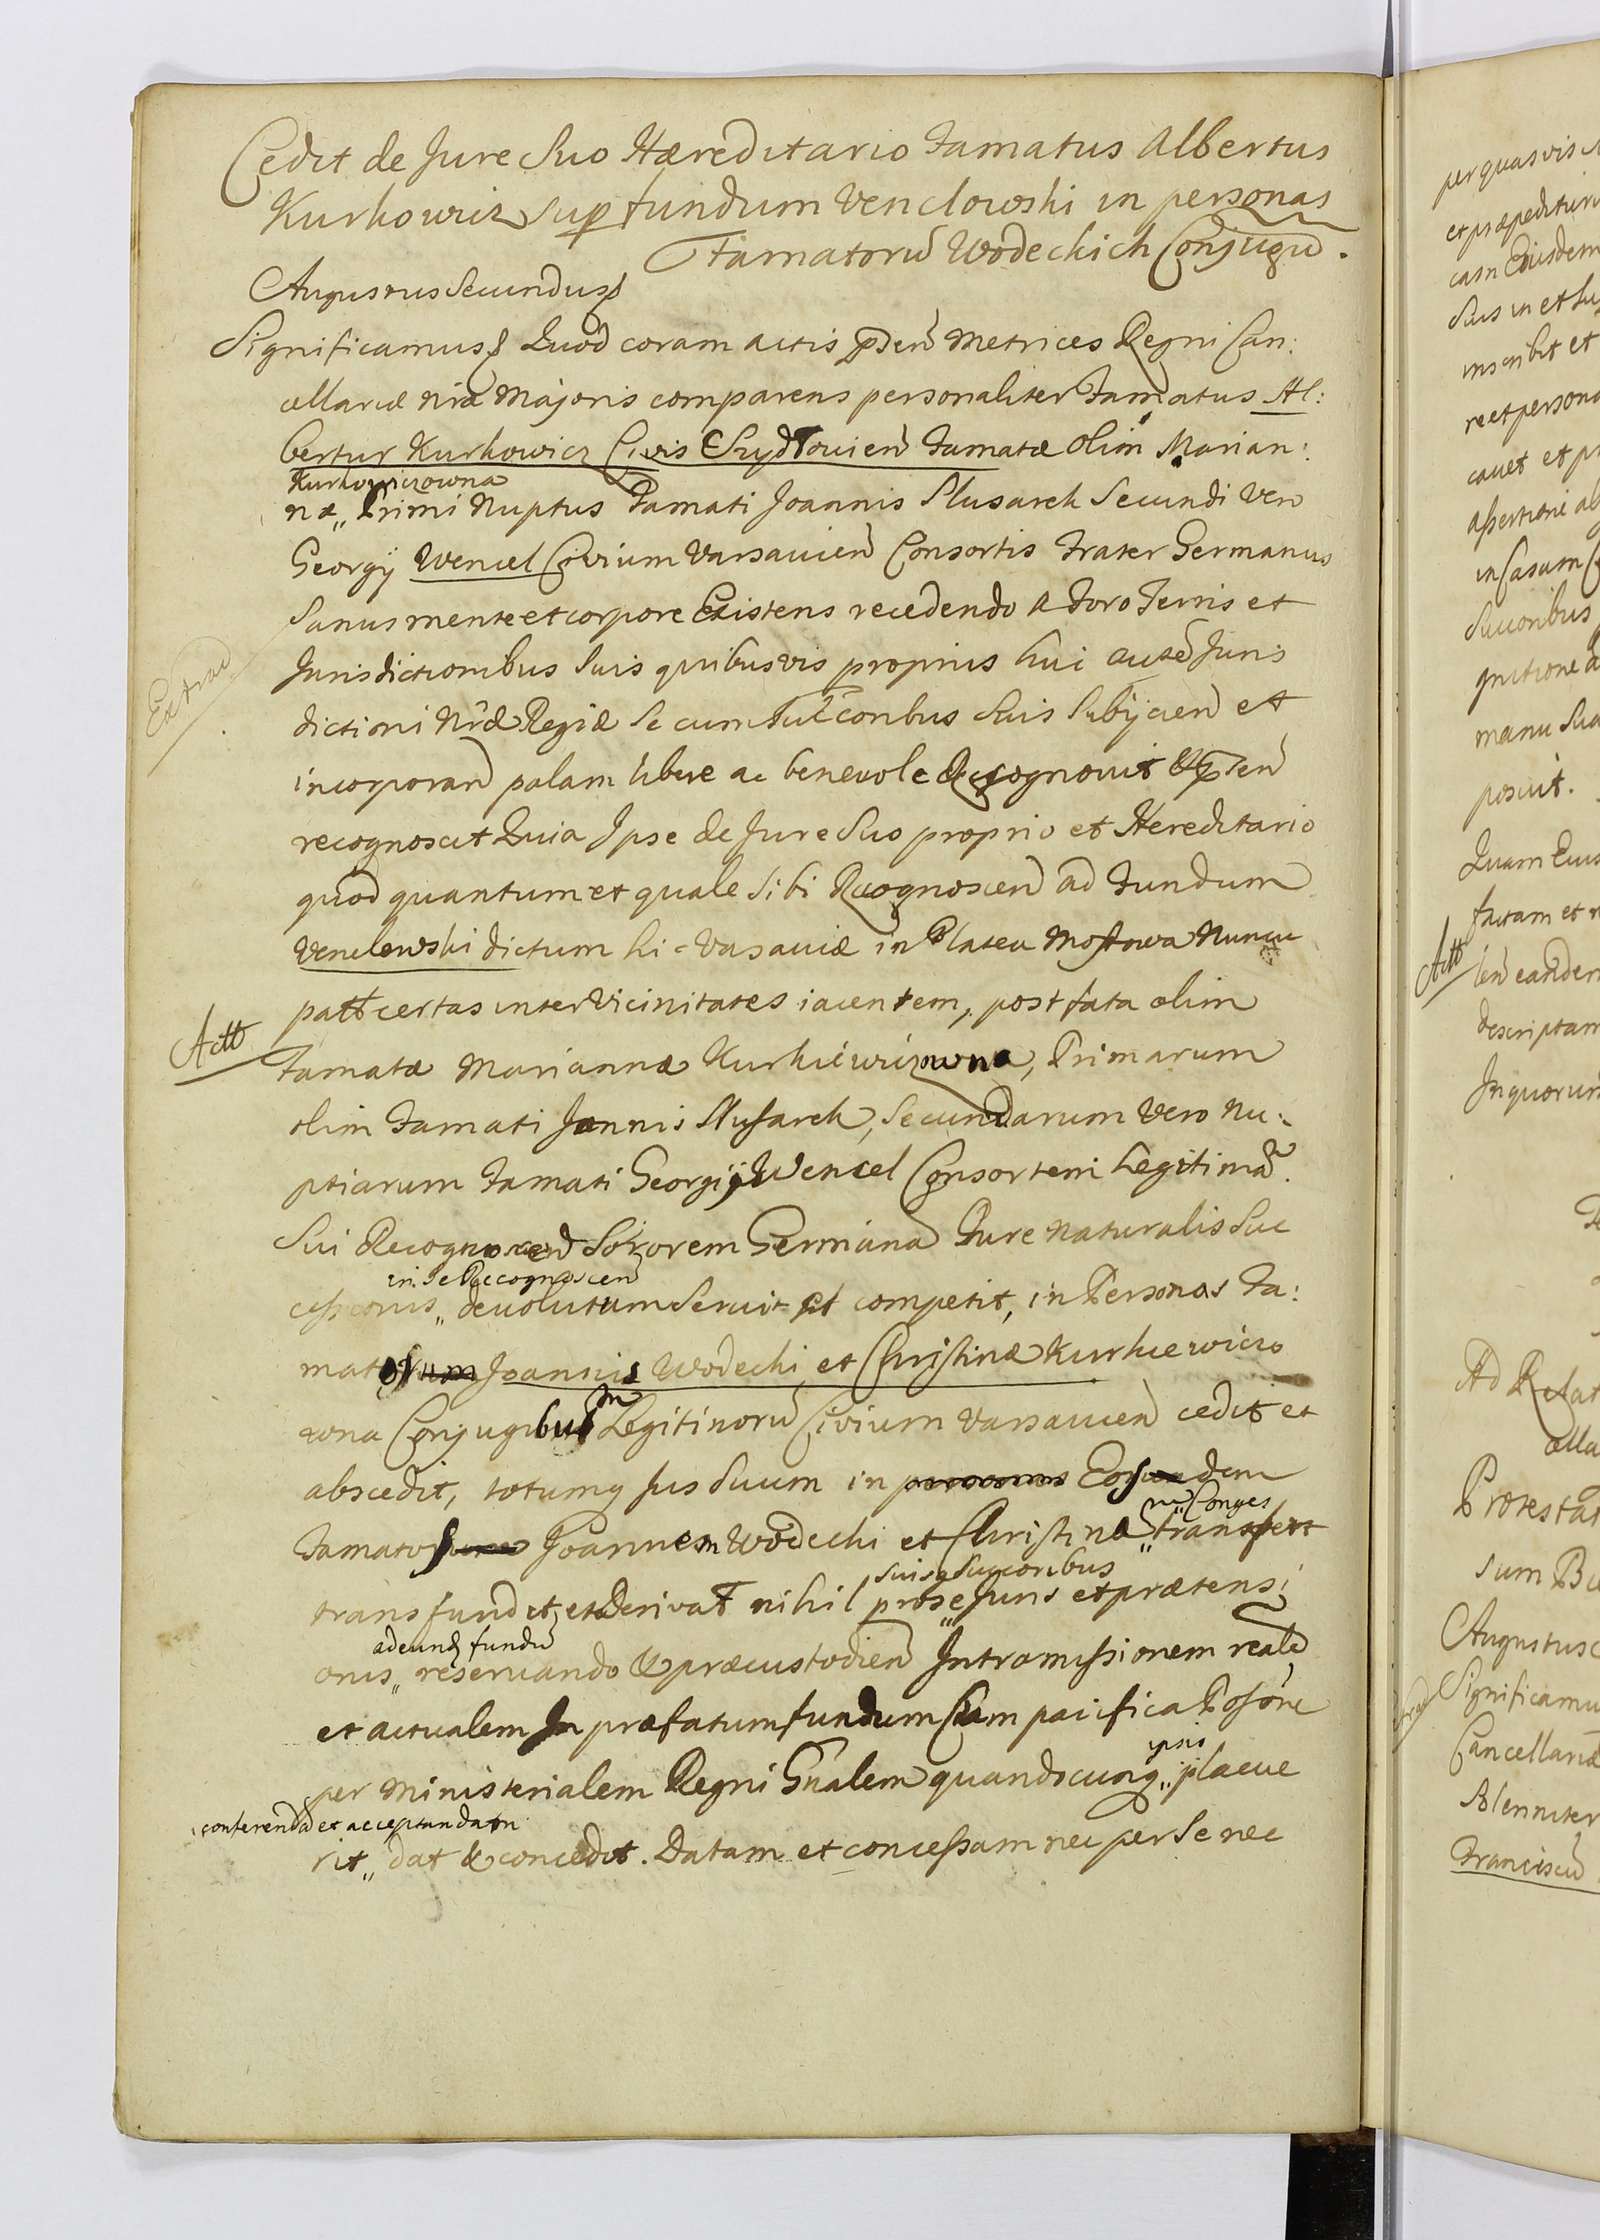 Cedit de Jure Suo Hæreditario Famatus Albertus
Kurkowicz sup fundum Venclowski in personas
Famatorũ Wodeckich Conjugũ.
Augustus Secundus
Significamus Quod coram actis pñden Metrices Regni Can:
cellariæ nrǽ Majoris comparens personaliter Famatus Al:
bertus Kurkowicz Civis Szydłovien Famatæ olim Marian:
Kurkowiczowna
næ,, Primi Nuptus Famati Joannis Slusarek Secundi Vero
Georgÿ Wencel Civium Varsavien Consortis Frater Germanus
Sanus mente et corpore Existens recedendo a Foro Terris et
Jurisdictionibus Suis quibusvis proprius hui autē Juris
Extrad
dictioni Nrǽ Regiæ Se cum Succonbus Suis Subÿcien et
incorporan palam libere ac benevole Recognovit &pñten
recognoscit Quia Ipse de Jure Suo proprio et Hereditario
quod quantum et quale Sibi Recognoscen ad Fundum
Venclewski dictum hic Varsaviæ in Platea Mostowa Nuncu
patt certas inter Vicinitates iacentem, post fata olim
Actt
Famatæ Mariannæ Kurkiewiczowna, Primarum
olim Famati Joannis Slusarek, Secundarum Vero Nu:
ptiarum Famati Georgÿ Wencel Consortem Legitimã.
Sui Recognoscen Sororem Germanã Jure naturalis Suc
in Se Reccognoscen
cessionis,, devolutum Servit et competit, in Personas Fa:
matorum Joannis Wodecki et Christinæ Kurkiewiczo
m
wna Conjugibus Legitimorũ Civium Varsavien cedit et
abscedit, totumq Jus Suum in personas Eosdem
m Conges
Famatos Joannem Wodecki et Christina,, transfert
suisq Succoribus
transfundit, et derivat nihil pro se,, Juris et prætensi
adeund fundũ
onis,, reservando & præcustodien Intromissionem realē
et actualem In præfatum fundum Cum pacifica Possõne
ipsis
per Ministerialem Regni Gñalem quandocunq,, placue
conferendã et acceptandam
rit,, dat & concedit. Datam et concessam nec per Se nec
per quasvis
casu Eiusdem
inscribit et
re et persona
cavet et
in Casum
Succoribus
manu Sua
posuit.
Quam Eius
factam et
Actt
descriptam
In quorum
Ad Relat
Protestat
Augustus
Significamu
Cancellariæ
Solenniter
Franciscũ